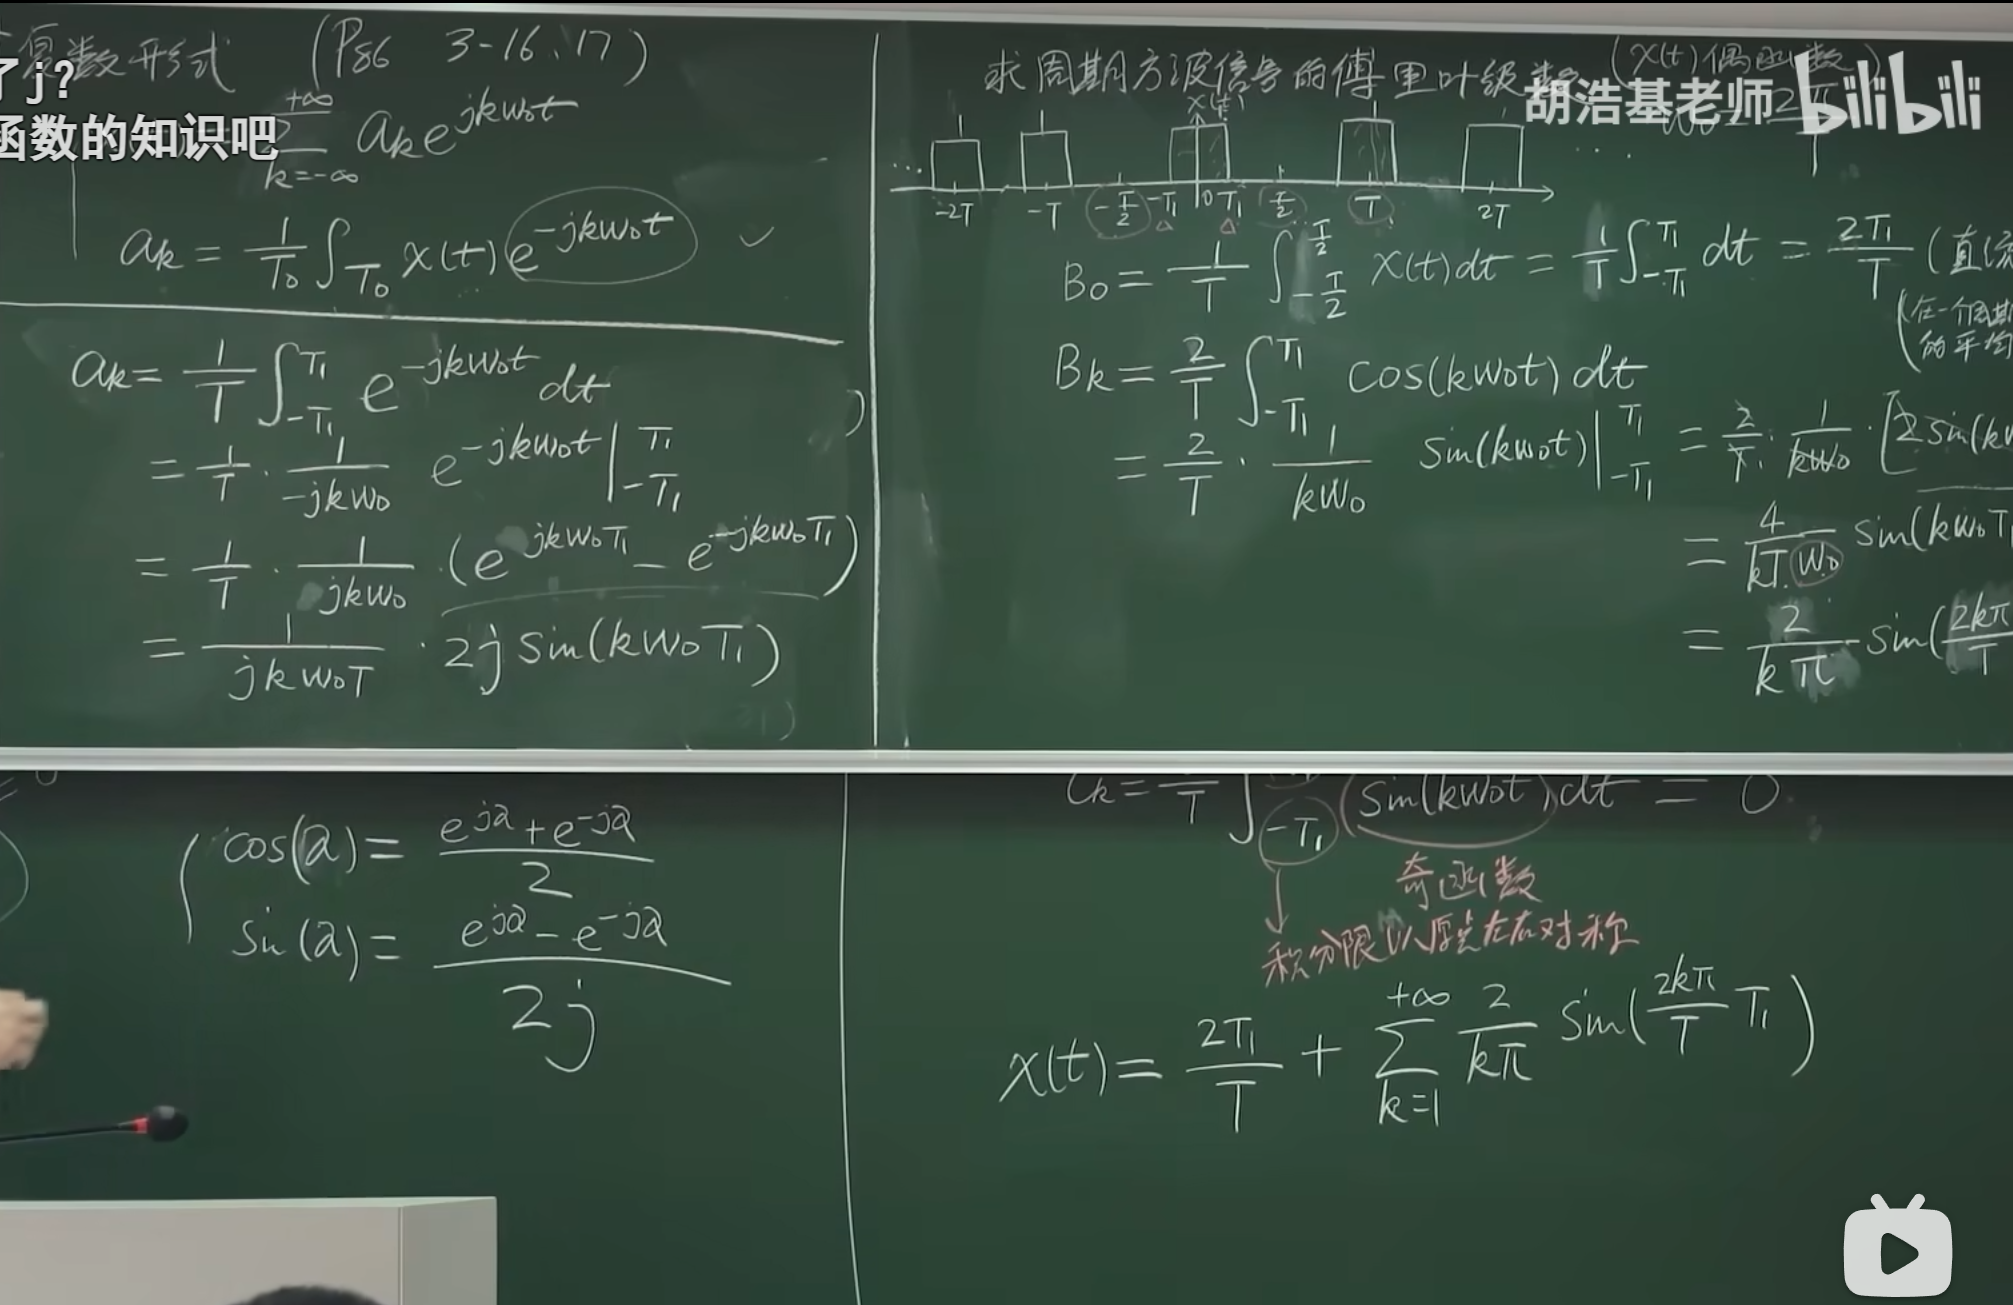 复数形式 (P86 3-16、17)
了j?
函数的知识吧
+∞ Σ k=-∞ aₖe^{jkω₀t}
aₖ = 1/T₀ ∫_{T₀} x(t) e^{-jkω₀t} ✓
aₖ = 1/T ∫_{-T₁}^{T₁} e^{-jkω₀t} dt
= 1/T · 1/(-jkω₀) e^{-jkω₀t} |_{-T₁}^{T₁}
= 1/T · 1/(jkω₀) · (e^{jkω₀T₁} - e^{-jkω₀T₁})
= 1/(jkω₀T) · 2j sin(kω₀T₁)
求周期方波信号的傅里叶级数 (x(t)偶函数)
胡浩基老师 bilibili
x(t)
... -2T -T -T/2 -T₁ 0 T₁ T/2 T 2T ...
B₀ = 1/T ∫_{-T/2}^{T/2} x(t)dt = 1/T ∫_{-T₁}^{T₁} dt = 2T₁/T (直流
(在一个周期
的平均
Bₖ = 2/T ∫_{-T₁}^{T₁} cos(kω₀t) dt
= 2/T · 1/(kω₀) sin(kω₀t) |_{-T₁}^{T₁} = 2/T · 1/(kω₀) · [2sin(kω
= 4/(kTω₀) sin(kω₀T
= 2/(kπ) sin(2kπ/T
cos(a) = (e^{ja} + e^{-ja})/2
sin(a) = (e^{ja} - e^{-ja})/2j
Cₖ = /T ∫_{-T₁} (sin(kω₀t)) dt = 0
奇函数
积分限以原点左右对称
x(t) = 2T₁/T + Σ_{k=1}^{+∞} 2/(kπ) sin(2kπ/T T₁)